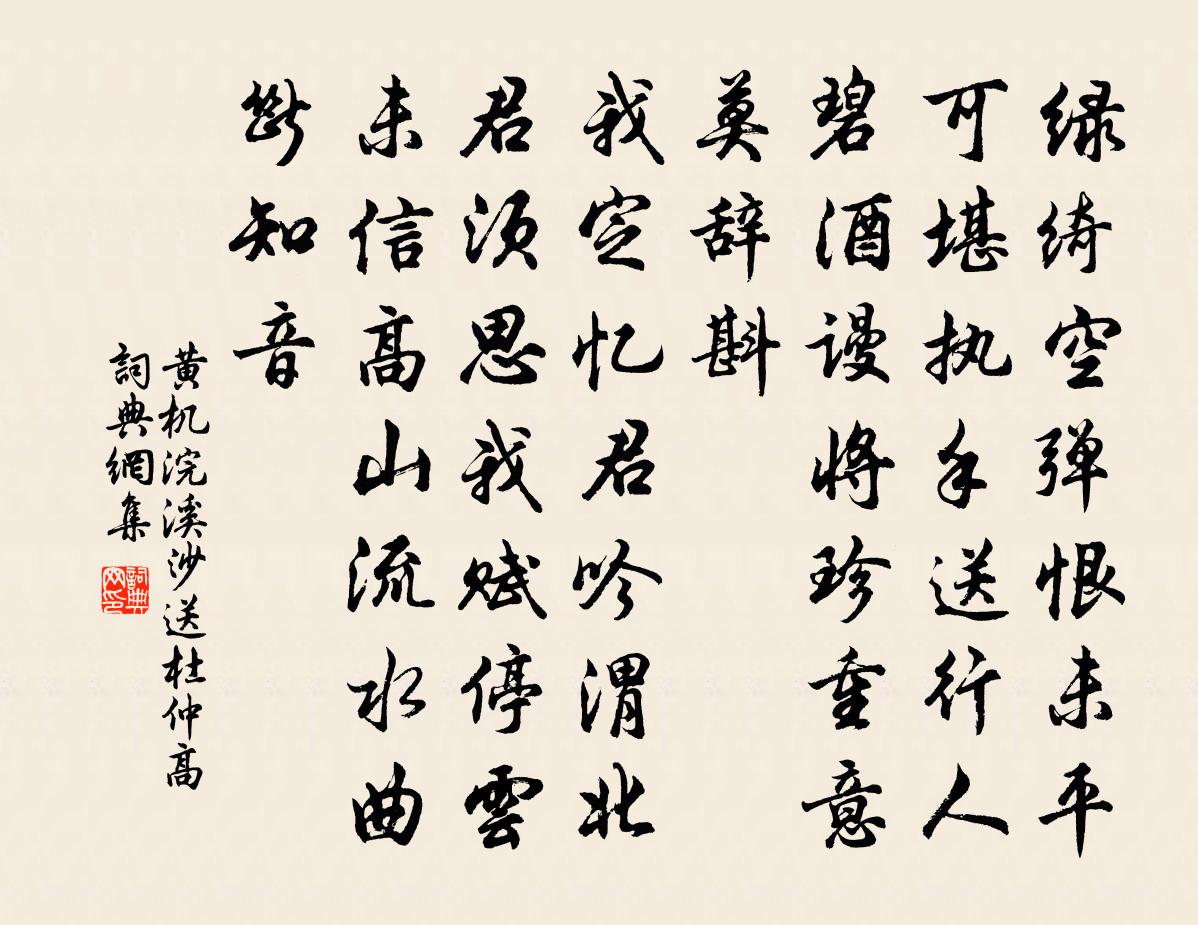 绿绮空弹恨未平
可堪执手送行人
碧酒谩将珍重意
莫辞斟
我定忆君吟渭北
君须思我赋停雲
未信高山流水曲
断知音
黄机浣溪沙送杜仲高
詞典網集
詞典
网印